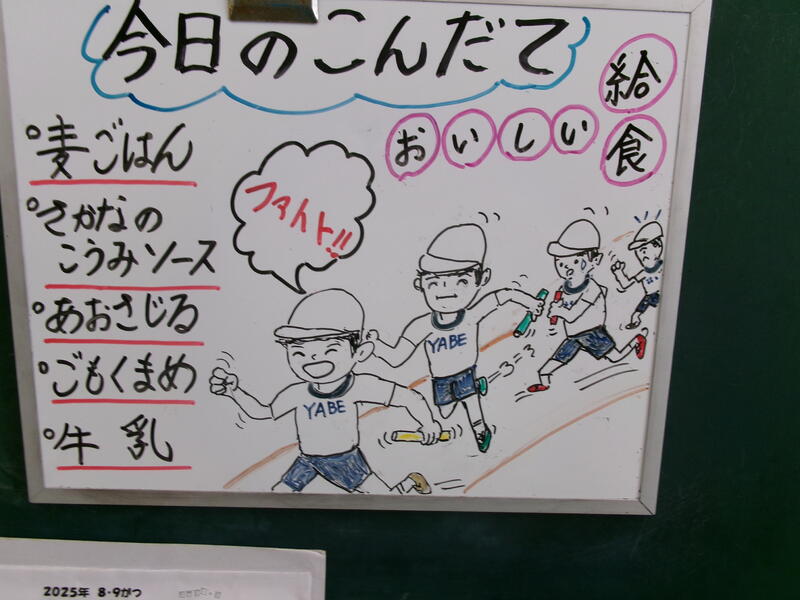 今日のこんだて
おいしい
給食
○麦ごはん
○さかなの
こうみソース
○あおさじる
○ごもくまめ
○牛乳
ファイト!!
YABE
YABE
2025年 8・9がつ